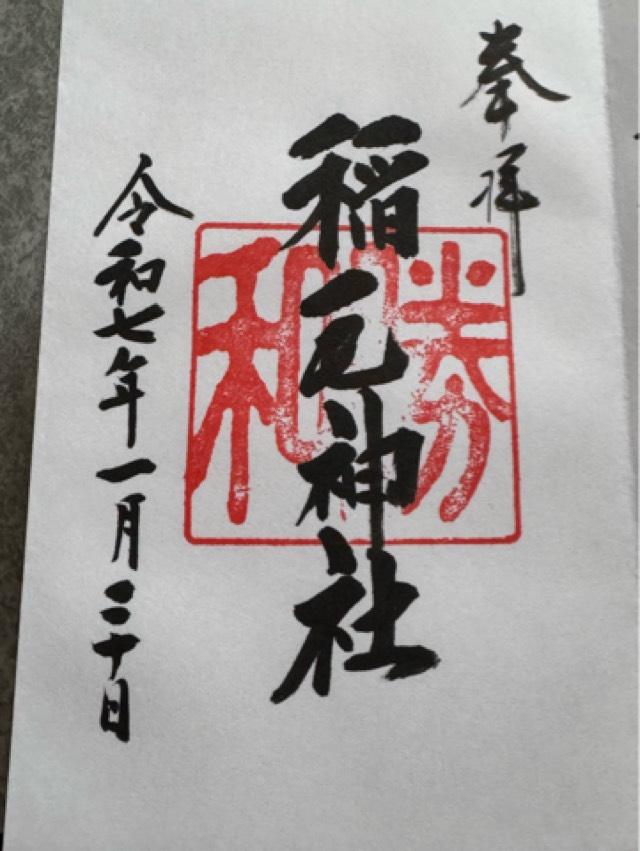 奉拝
稲毛神社
勝和
令和七年一月二十日